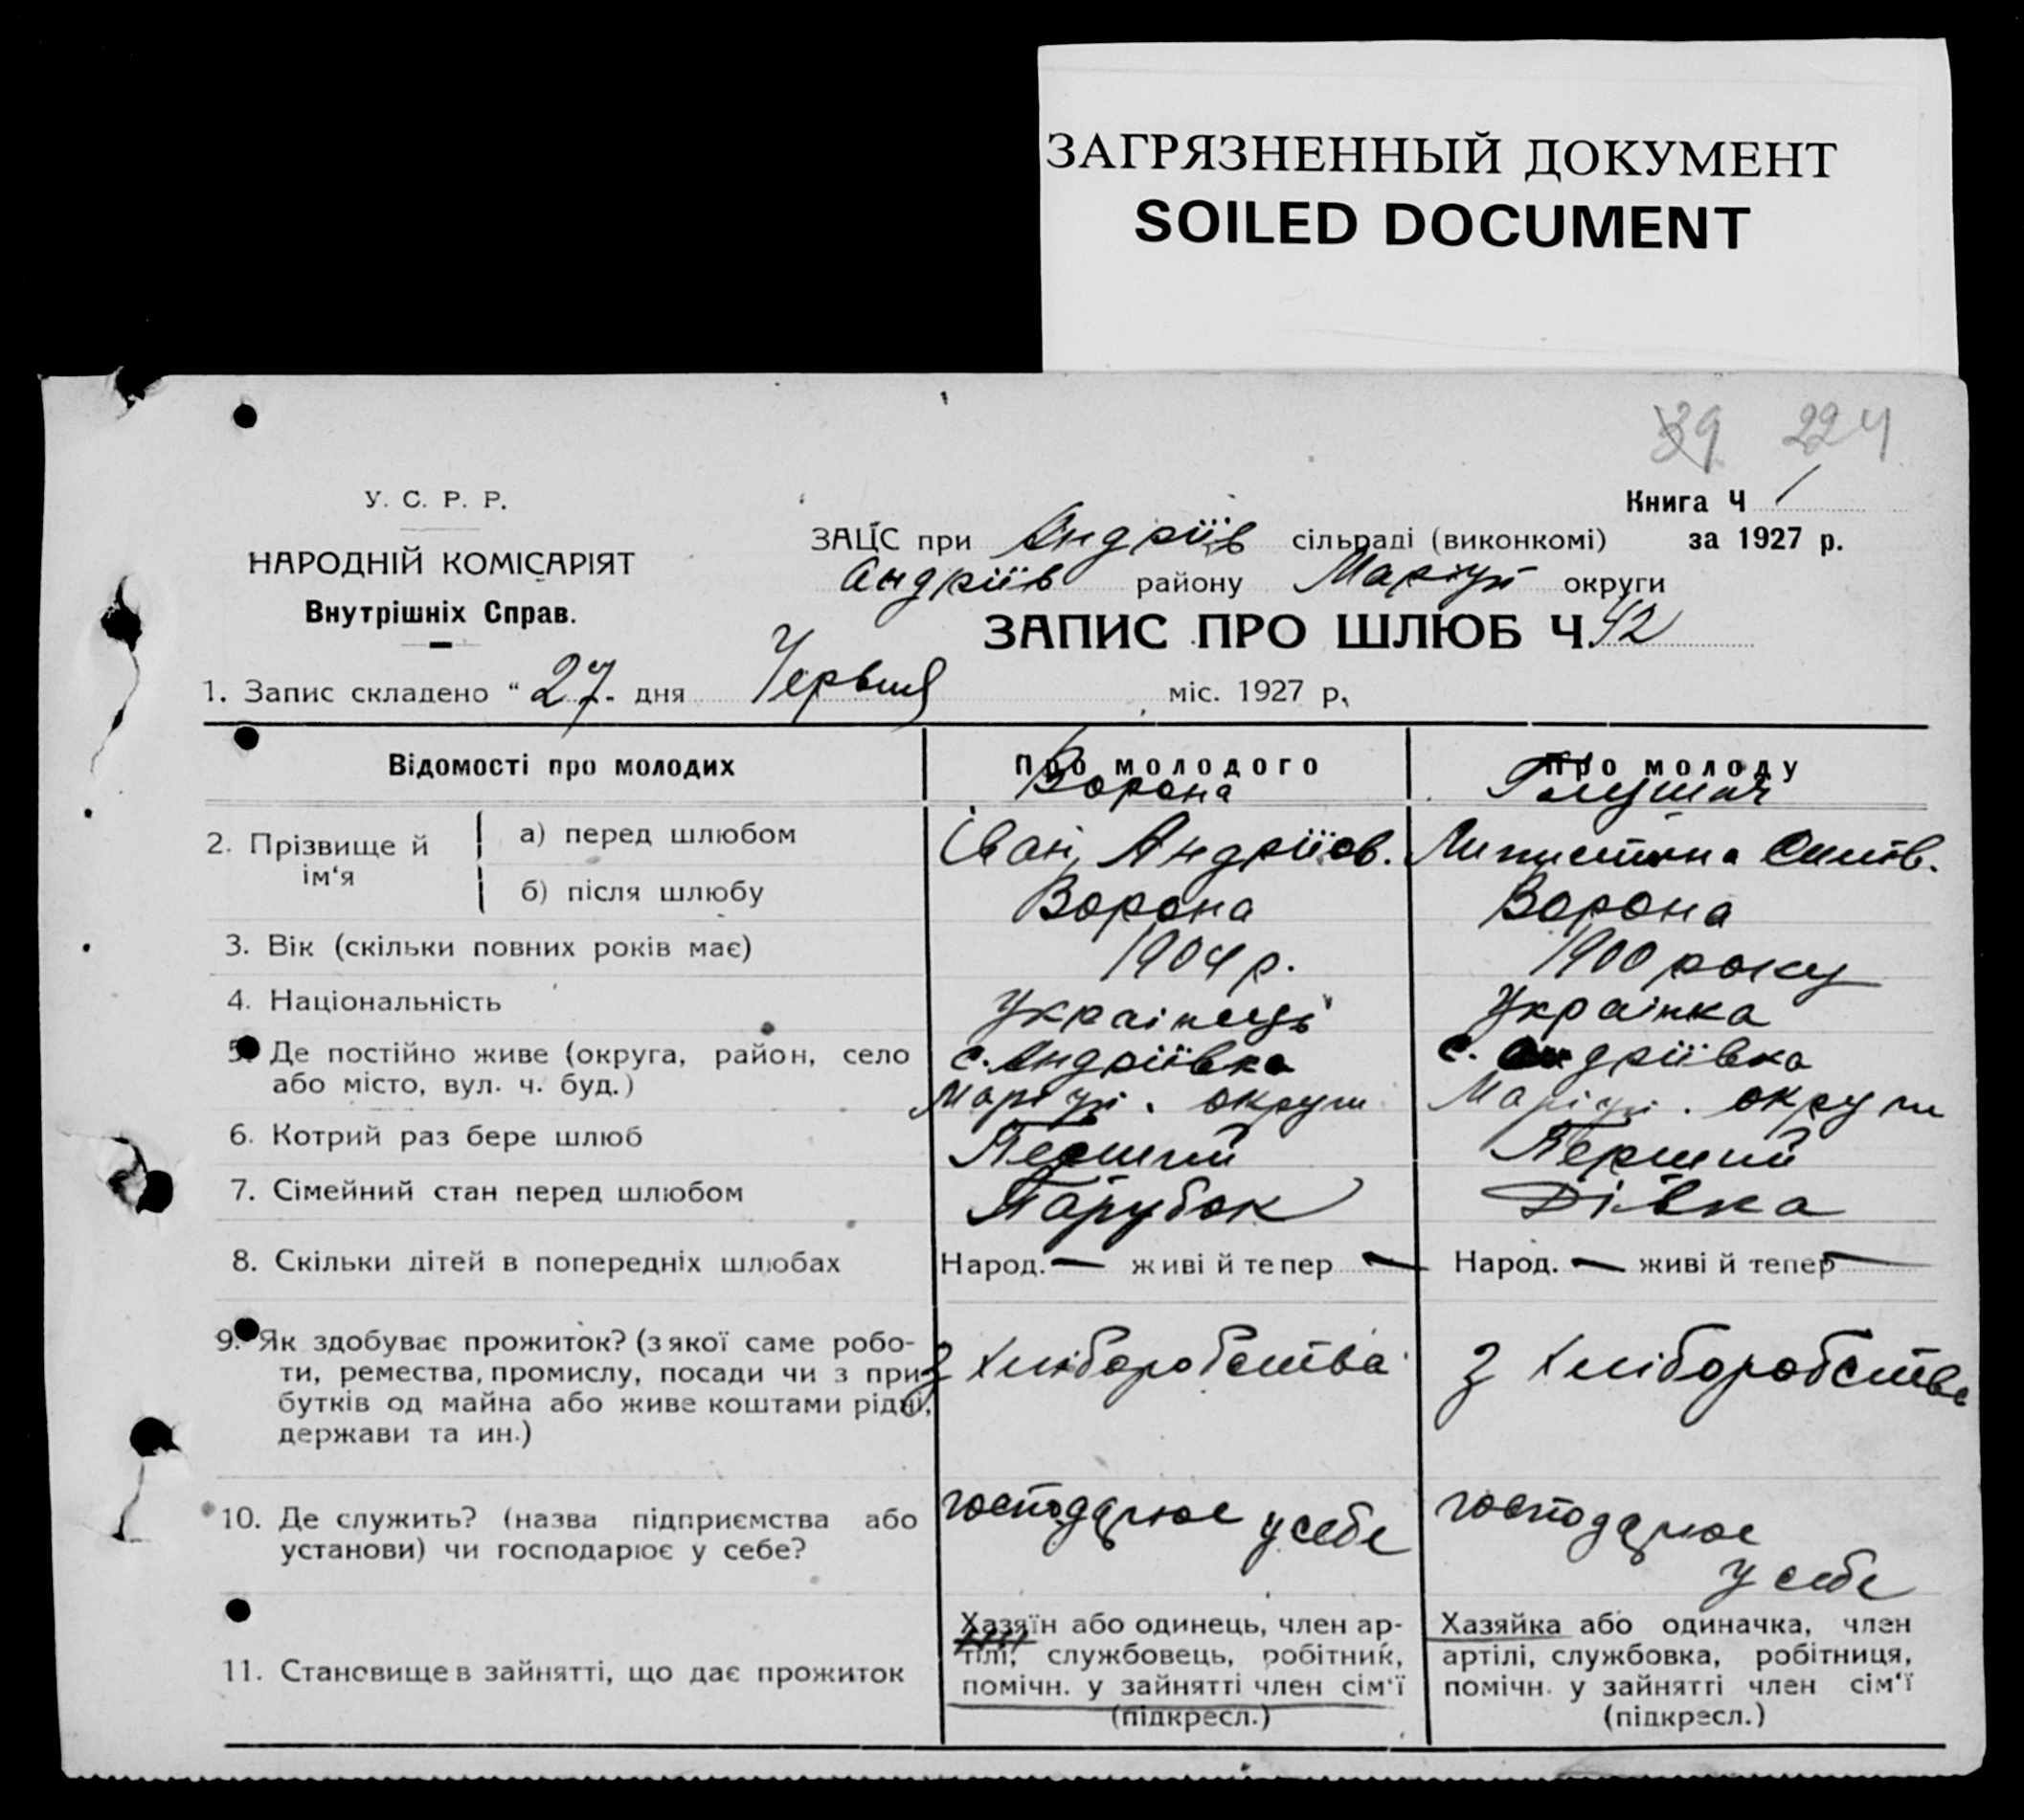 ЗАГРЯЗНЕННЫЙ ДОКУМЕНТ
SOILED DOCUMENT
39 224
У. С. Р. Р.
НАРОДНІЙ КОМІСАРІЯТ
Внутрішніх Справ.
Книга Ч 1
за 1927 р.
ЗАЦС при Андріїв сільраді (виконкомі)
Андріїв району Маріуп округи
ЗАПИС ПРО ШЛЮБ Ч. 42
1. Запис складено “ 27. дня Червня міс. 1927 р.
Відомості про молодих
Про молодого
Про молоду
Ворона
2. Прізвище й ім‘я
а) перед шлюбом
Іван Андріїов.
б) після шлюбу
Ворона
Ворона
3. Вік (скільки повних років має)
1904 р.
1900 року
4. Національність
Українець
Українка
5. Де постійно живе (округа, район, село
або місто, вул. ч. буд.)
с. Андріївка
Маріуп. округи
с. Андріївка
Маріуп. округи
6. Котрий раз бере шлюб
Перший
Перший
7. Сімейний стан перед шлюбом
Парубок
Дівка
8. Скільки дітей в попередніх шлюбах
Народ. — живі й тепер —
Народ. — живі й тепер —
9. Як здобуває прожиток? (з якої саме робо-
ти, ремества, промислу, посади чи з при-
бутків од майна або живе коштами рідні,
держави та ин.)
з хліборобства
з хліборобства
10. Де служить? (назва підприємства або
установи) чи господарює у себе?
господарює у себе
господарює
у себе
11. Становище в зайнятті, що дає прожиток
Хазяїн або одинець, член ар-
тілі, службовець, робітник,
помічн. у зайнятті член сім‘ї
(підкресл.)
Хазяйка або одиначка, член
артілі, службовка, робітниця,
помічн. у зайнятті член сім‘ї
(підкресл.)